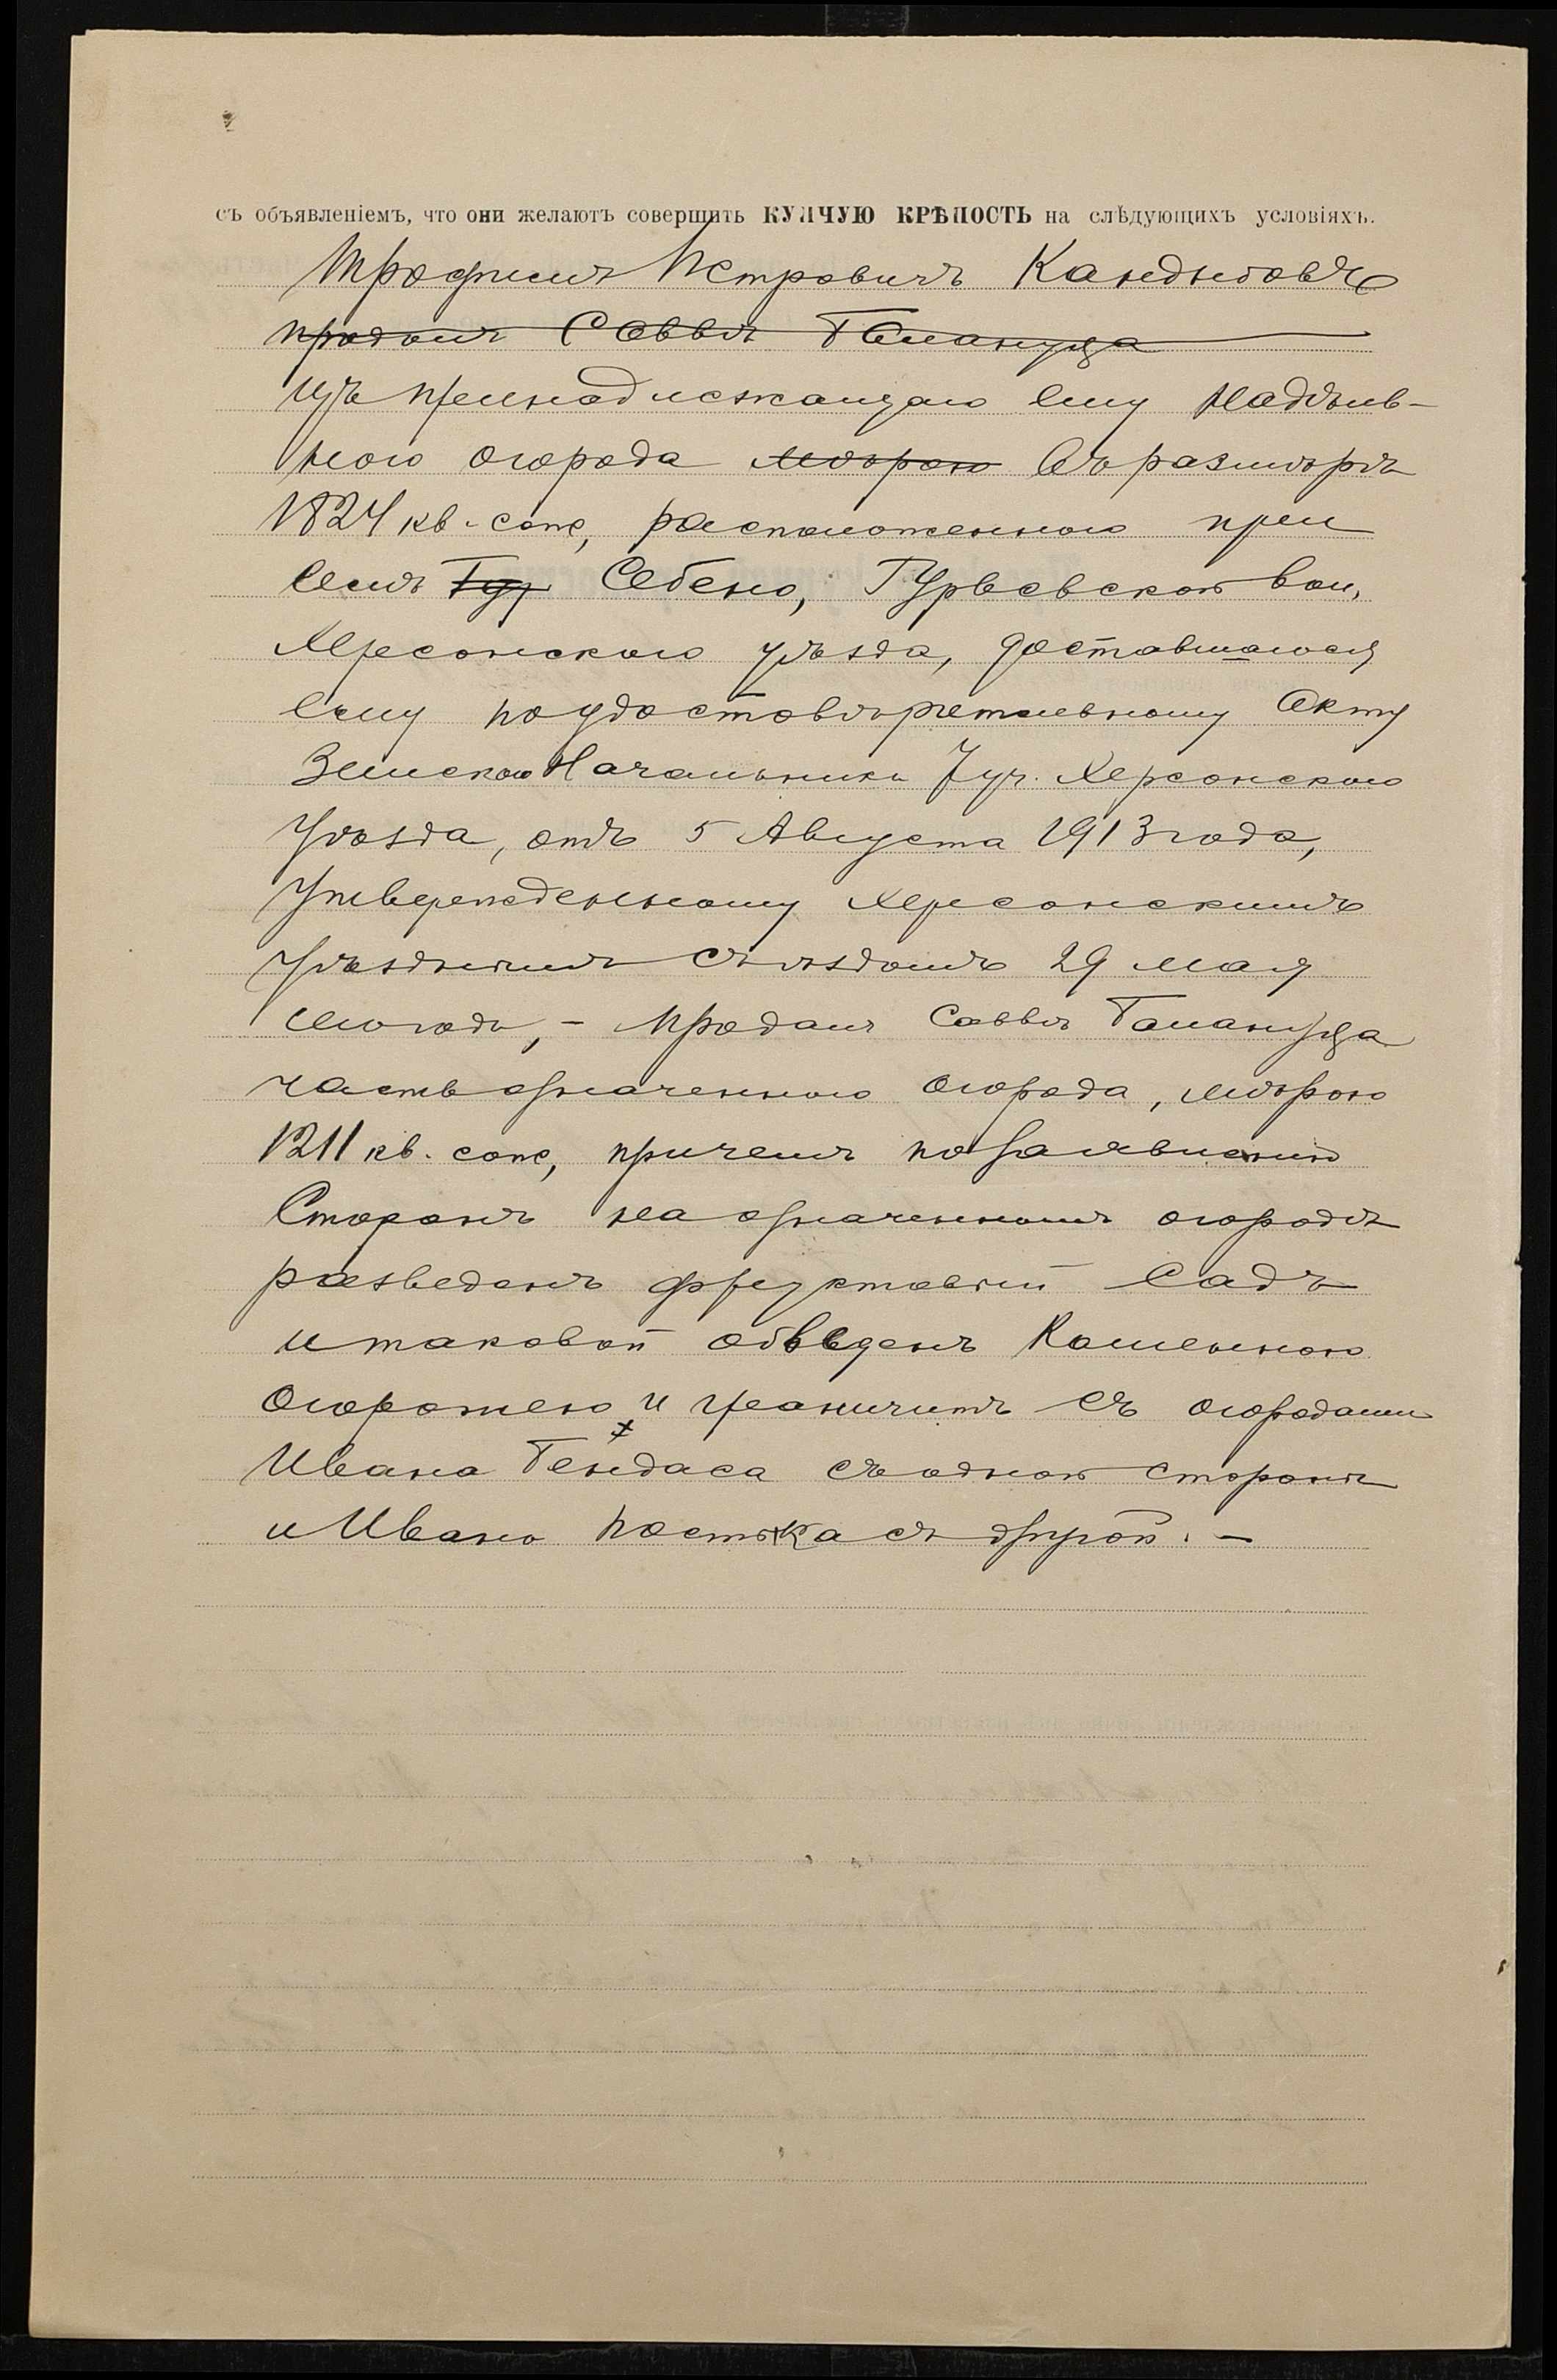 съ объявленіемъ, что они желаютъ совершить КУПЧУЮ КРѢПОСТЬ на слѣдующихъ условіяхъ.
Трофимъ Петровичъ Кандыбовъ
продалъ Саввѣ Галануца
изъ принадлежащаго ему надѣль-
наго огорода мѣрою въ размѣрѣ
1824 кв. саж, расположеннаго при
селѣ Гур Себено, Гурьевской вол,
Херсонскаго уѣзда, доставшагося
ему по удостовѣрительному акту
Земскаго Начальника уч. Херсонскаго
уѣзда, отъ 5 Августа 1913 года,
утвержденному Херсонскимъ
уѣзднымъ съѣздомъ 29 мая
года, - продалъ Саввѣ Галануца
часть означеннаго огорода, мѣрою
1211 кв. саж, причемъ по заявленію
сторонъ на означенномъ огородѣ
разведенъ фруктовый садъ
и таковой обведенъ каменною
огорожею и граничитъ съ огородами
Ивана Гендаса съ одной стороны
и Ивана Постыка съ другой. -